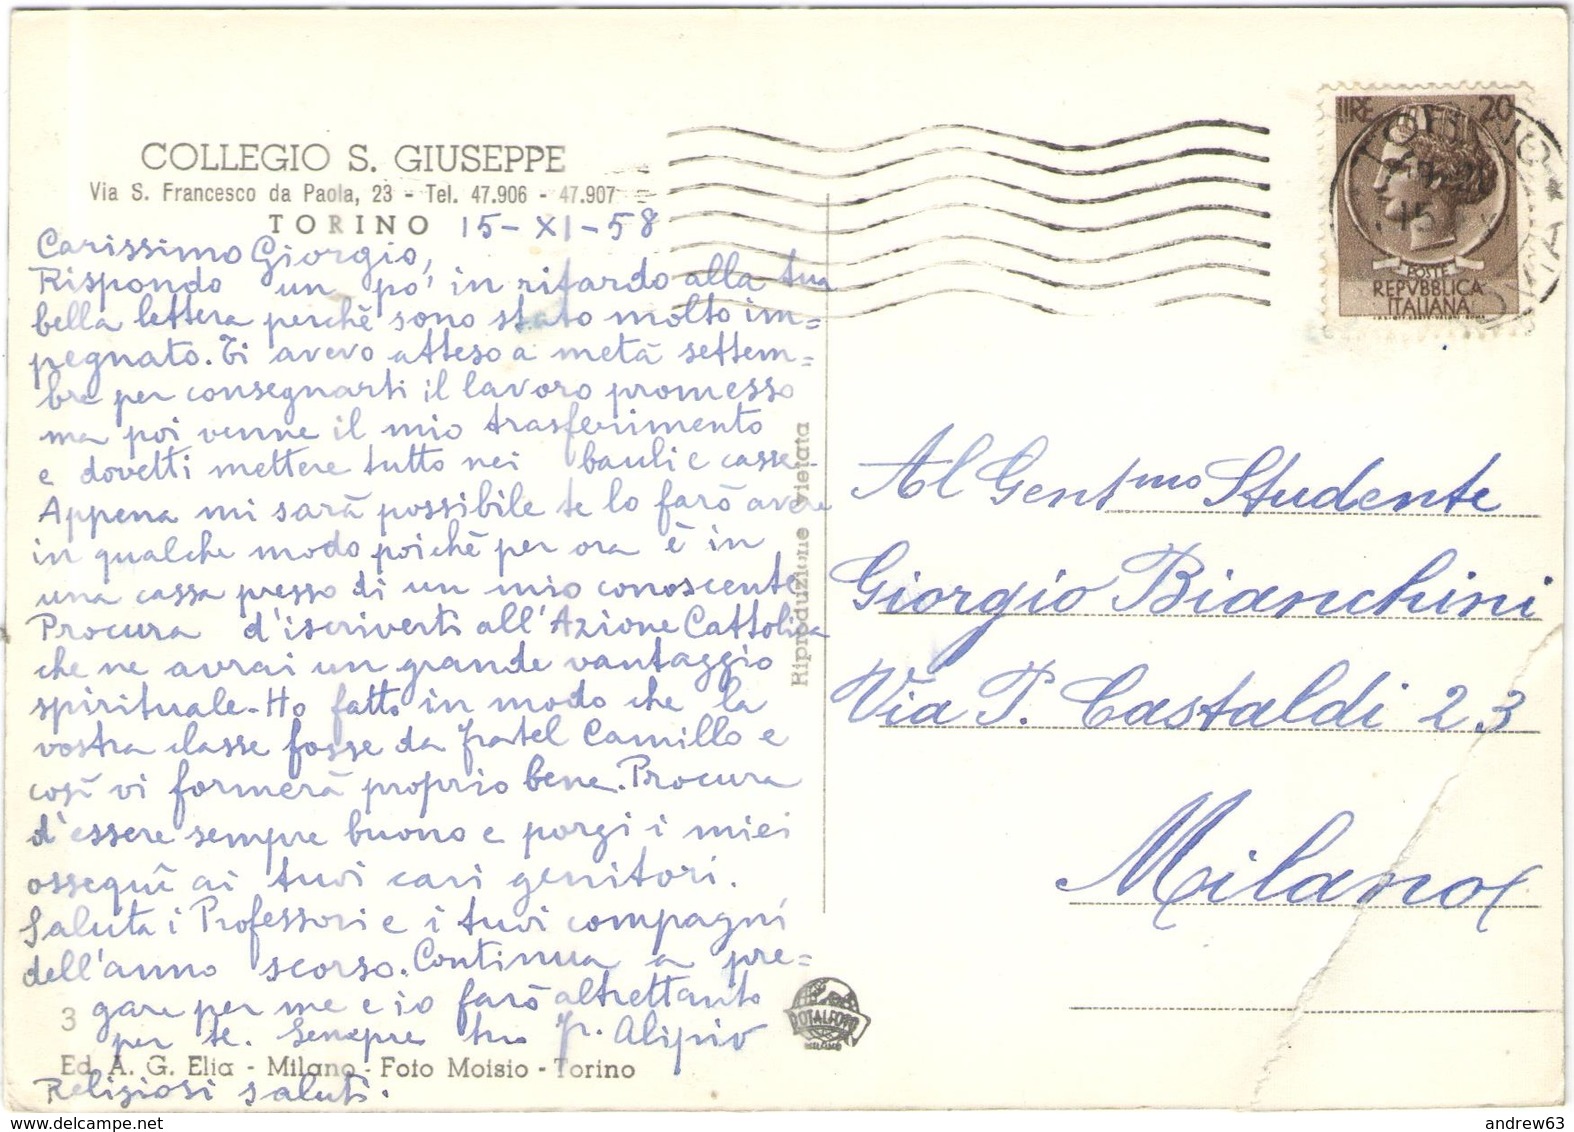 COLLEGIO S. GIUSEPPE
Via S. Francesco da Paola, 23 - Tel. 47.906 - 47.907
TORINO 15-XI-58
Carissimo Giorgio,
Rispondo un po' in ritardo alla tua
bella lettera perchè sono stato molto im=
pegnato. Ti avevo atteso a metà settem=
bre per consegnarti il lavoro promesso
ma poi venne il mio trasferimento
e dovetti mettere tutto nei bauli e casse.
Appena mi sarà possibile te lo farò avere
in qualche modo poichè per ora è in
una cassa presso di un mio conoscente
Procura d'iscriverti all'Azione Cattolica
che ne avrai un grande vantaggio
spirituale - Ho fatto in modo che la
vostra classe fosse da fratel Camillo e
così vi formerà proprio bene. Procura
d'essere sempre buono e porgi i miei
ossequi ai tuoi cari genitori.
Saluta i Professori e i tuoi compagni
dell'anno scorso. Continua a pre=
gare per me e io farò altrettanto
per te. Sempre tuo fr. Alipio
Religiosi saluti.
3
Ed. A. G. Elia - Milano - Foto Moisio - Torino
Riproduzione vietata
ROTALFOTO
MILANO
LIRE 20
POSTE
REPVBBLICA
ITALIANA
TORINO
15
Al Gent.mo Studente
Giorgio Bianchini
Via P. Castaldi 23
Milano
andrew63
www.delcampe.net